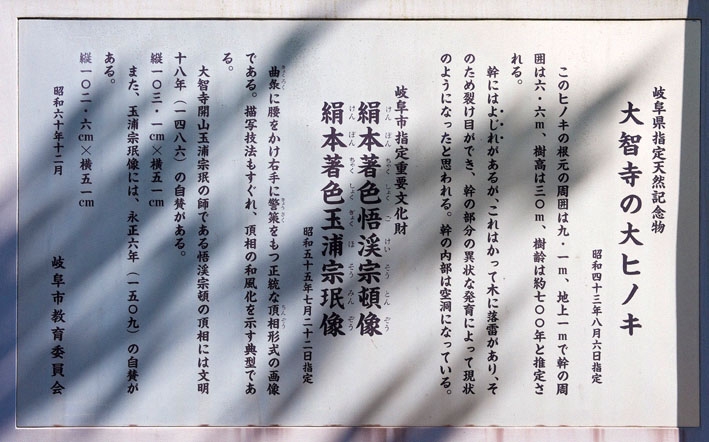 岐阜県指定天然記念物
大智寺の大ヒノキ
昭和四十三年八月六日指定
このヒノキの根元の周囲は九・一m、地上一mで幹の周
囲は六・六m、樹高は三〇m、樹齢は約七〇〇年と推定さ
れる。
幹にはよじれがあるが、これはかって木に落雷があり、そ
のため裂け目ができ、幹の部分の異状な発育によって現状
のようになったと思われる。幹の内部は空洞になっている。
岐阜市指定重要文化財
絹本著色悟渓宗頓像
けんぽんちゃくしょくごけいそうとんぞう
絹本著色玉浦宗珉像
けんぽんちゃくしょくぎょくほそうみんぞう
昭和五十五年七月二十二日指定
曲条に腰をかけ右手に警策をもつ正統な頂相形式の画像
きょくろく
きょうさく
ちんぞう
である。描写技法もすぐれ、頂相の和風化を示す典型であ
る。
大智寺開山玉浦宗珉の師である悟渓宗頓の頂相には文明
十八年（一四八六）の自賛がある。
縦一〇三・一cm×横五一cm
また、玉浦宗珉像には、永正六年（一五〇九）の自賛が
ある。
縦一〇二・六cm×横五一cm
昭和六十年十二月
岐阜市教育委員会